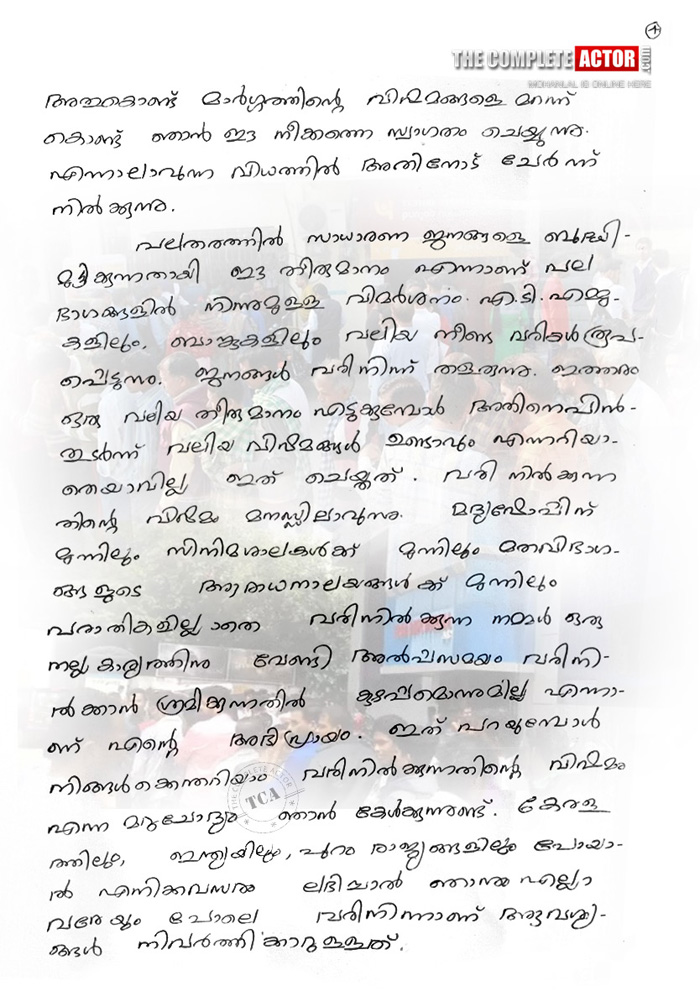 4
THE COMPLETE ACTOR .com
MOHANLAL IS ONLINE HERE
അതുകൊണ്ട് മാർഗ്ഗത്തിന്റെ വിഷമങ്ങളെ മറന്ന്
കൊണ്ട് ഞാൻ ഈ നീക്കത്തെ സ്വാഗതം ചെയ്യുന്നു.
എന്നാലാവുന്ന വിധത്തിൽ അതിനോട് ചേർന്ന്
നിൽക്കുന്നു.
പലതരത്തിൽ സാധാരണ ജനങ്ങളെ ബുദ്ധി-
മുട്ടിക്കുന്നതായി ഈ തീരുമാനം എന്നാണ് പല
ഭാഗങ്ങളിൽ നിന്നുമുള്ള വിമർശനം. എ.ടി.എമ്മു-
കളിലും, ബാങ്കുകളിലും വലിയ നീണ്ട വരികൾ രൂപ-
പ്പെട്ടുന്നു. ജനങ്ങൾ വരിനിന്ന് തളരുന്നു. ഇത്തരം
ഒരു വലിയ തീരുമാനം എടുക്കുമ്പോൾ അതിനെപിൻ-
തുടർന്ന് വലിയ വിഷമങ്ങൾ ഉണ്ടാവും എന്നറിയാ-
തെയാവില്ല ഇത് ചെയ്തത്. വരി നിൽക്കുന്ന
തിന്റെ വിഷമം മനസ്സിലാവുന്നു. മദ്യഷോപ്പിന്
മുന്നിലും സിനിമശാലകൾക്ക് മുന്നിലും മതവിഭാഗ-
ങ്ങളുടെ ആരാധനാലയങ്ങൾക്ക് മുന്നിലും
പരാതികളില്ലാതെ വരിനിൽക്കുന്ന നമ്മൾ ഒരു
നല്ല കാര്യത്തിനു വേണ്ടി അൽപ്പസമയം വരിനി-
ൽക്കാൻ ശ്രമിക്കുന്നതിൽ കുഴപ്പമൊന്നുമില്ല എന്നാ-
ണ് എന്റെ അഭിപ്രായം. ഇത് പറയുമ്പോൾ
നിങ്ങൾക്കെന്തറിയാം വരിനിൽക്കുന്നതിന്റെ വിഷമം
എന്ന മറുചോദ്യം ഞാൻ കേൾക്കുന്നുണ്ട്. കേരള
ത്തിലും, ഇന്ത്യയിലും, പുറം രാജ്യങ്ങളിലും പോയാ-
ൽ എനിക്കവസരം ലഭിച്ചാൽ ഞാനും എല്ലാ
വരേയും പോലെ വരിനിന്നാണ് ആവശ്യ-
ങ്ങൾ നിവർത്തിക്കാറുള്ളത്.
THE COMPLETE ACTOR
TCA